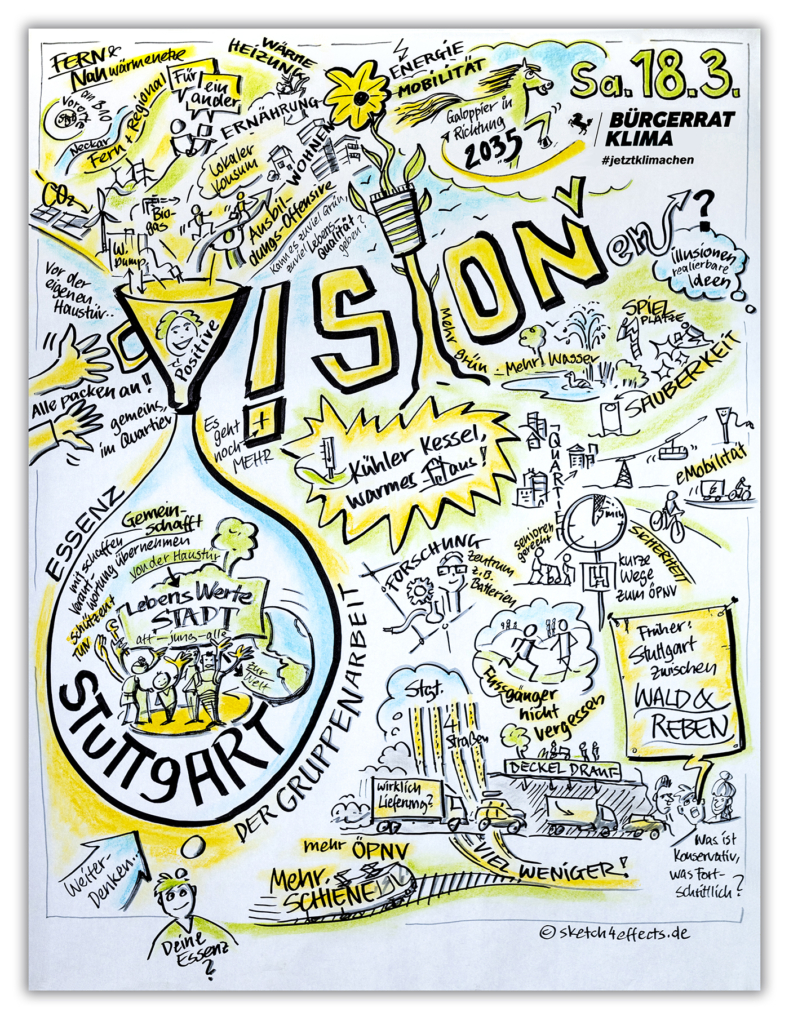 FERN &
Nah wärmenetze
WÄRME
HEIZUNG
ENERGIE
MOBILITÄT
Sa. 18.3.
BÜRGERRAT
KLIMA
#jetztklimachen
Galoppier in
Richtung
2035
Für
ein
ander
Vorort
Neckar
Fern + Regional
ERNÄHRUNG
WOHNEN
Lokaler
Konsum
Ausbil-
dungs Offensive
Kann es zuviel Grün,
zuviel Lebens-
Qualität
geben?
CO2
Bio-
gas
W.
Pump.
Vor der
eigenen
Haustür..
Positive
V!SION
en
?
illusionen
realisierbare
Ideen
Alle packen an!!
gemeins.
im Quartier
Es
geht
noch
MEHR
+
Mehr Grün - Mehr Wasser
SPIEL
PLÄTZE
SAUBERKEIT
Kühler Kessel,
warmes Haus!
QUARTIER
eMobilität
5
min
SICHERHEIT
senioren
gerecht
kurze
Wege
zum ÖPNV
FORSCHUNG
Zentrum
z.B.
Batterien
ESSENZ
DER GRUPPENARBEIT
Gemein-
schafft
mit schaffen
Verant-
wortung übernehmen
von der Haustür
schützen +
TUN
LebensWerte
STADT
alt - jung - alle
zur
Welt
STUTTgART
Fussgänger
nicht
vergessen
Früher:
Stuttgart
zwischen
WALD &
REBEN
Stgt.
4
Straßen
DECKEL DRAUF
wirklich
Lieferung?
VIEL WENIGER!
Was ist
Konservativ,
was Fort-
schrittlich?
mehr ÖPNV
Mehr
SCHIENE
Weiter-
Denken..
Deine
Essenz
?
© sketch4effects.de